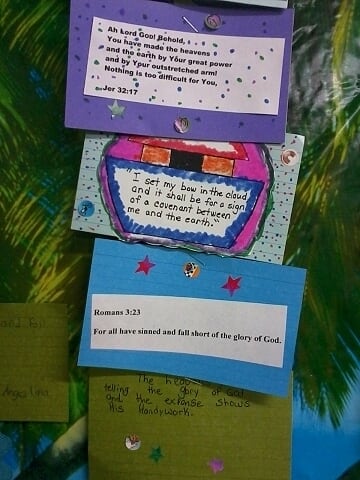 Ah Lord God! Behold,
You have made the heavens
and the earth by Your great power
and by Your outstretched arm!
Nothing is too difficult for You,
Jer 32:17
"I set my bow in the cloud
and it shall be for a sign
of a covenant between
me and the earth."
Romans 3:23
For all have sinned and fall short of the glory of God.
The
telling the glory of God
and the expanse shows
His Handywork.
and